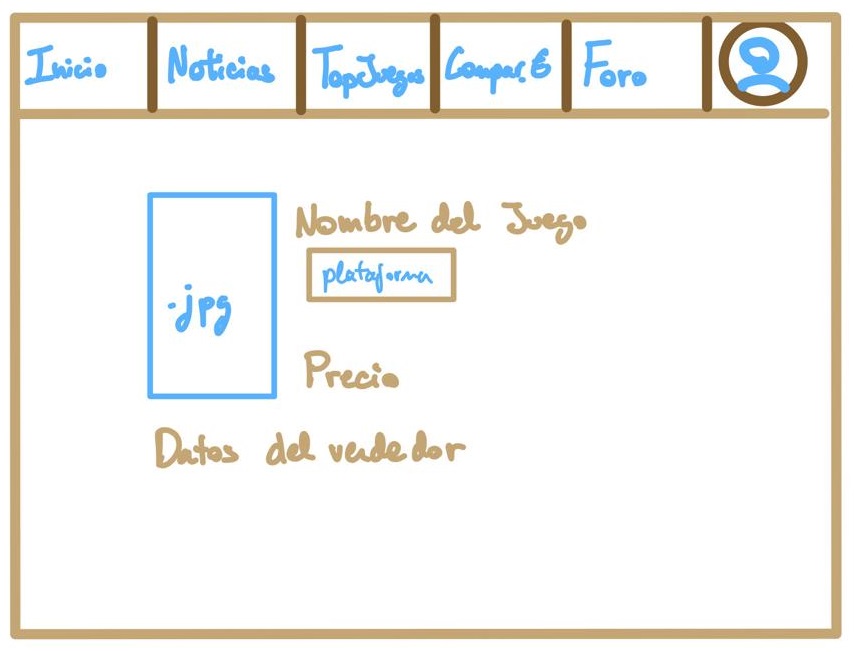 Inicio Noticias TopeJuegos Compar.€ Foro
Nombre del Juego
plataforma
.jpg
Precio
Datos del vendedor